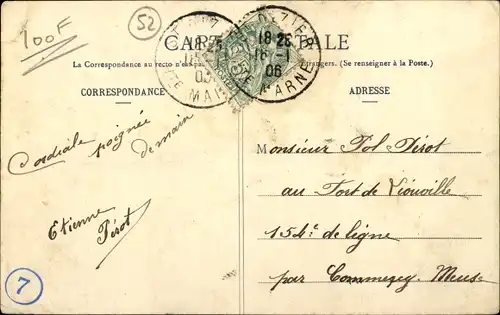 100F
52
CARTE POSTALE
La Correspondance au recto n'est pas étrangers. (Se renseigner à la Poste.)
CORRESPONDANCE
ADRESSE
18 25
MARNE
18 25
16-1
06
MARNE
Cordiale poignée
de main
Etienne
Pérot
Monsieur Pol Pérot
au Fort de Liouville
154e de ligne
par Commercy Meuse
7